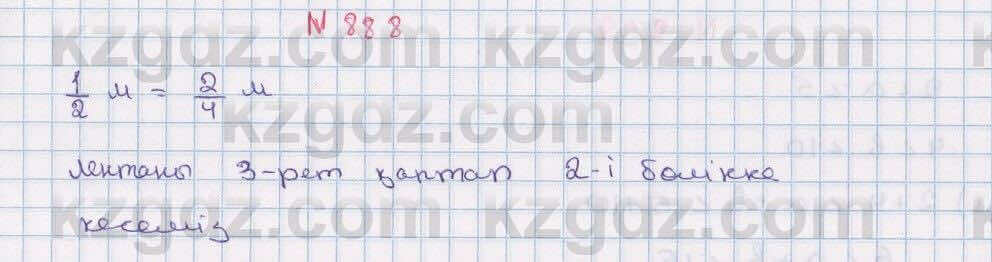 N 888
1/2 м = 2/4 м
Лентаны 3-рет қаптап 2-і бөлікке
кесеміз
kzgdz.com kzgdz.com
kzgdz.com
kzgdz.com kzgdz.com